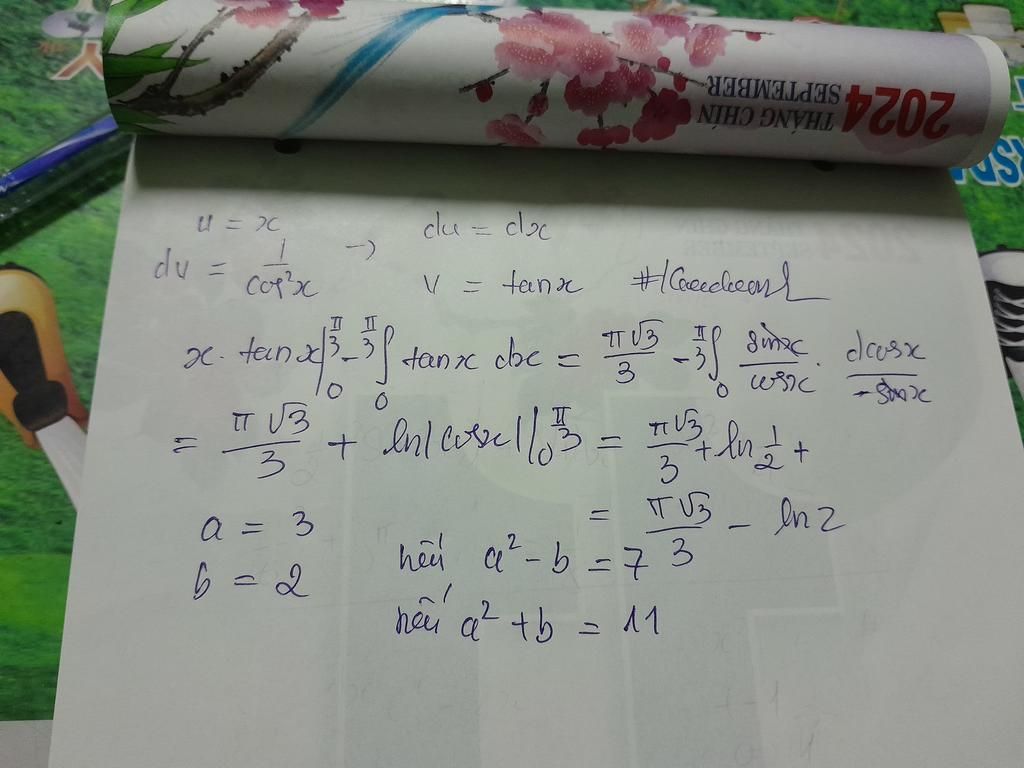 2024 THÁNG CHÍN
SEPTEMBER
u = x → du = dx
dv = 1/cos²x v = tanx
x. tanx|₀^(π/3) - ∫₀^(π/3) tanx dx = π√3/3 - ∫₀^(π/3) sinx/cosx . dcosx/-sinx
= π√3/3 + ln|cosx||₀^(π/3) = π√3/3 + ln 1/2 +
= π√3/3 - ln2
a = 3
b = 2
nếu a² - b = 7
nếu a² + b = 11